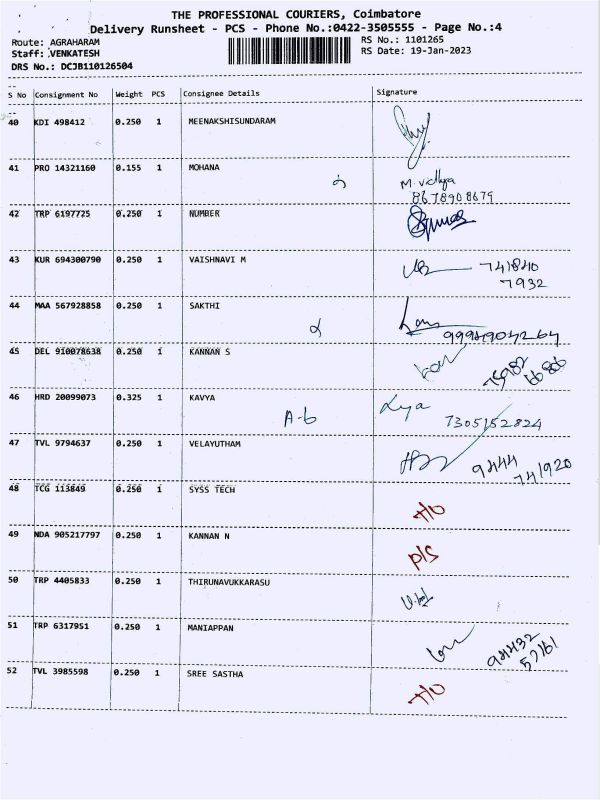 THE PROFESSIONAL COURIERS, Coimbatore
Delivery Runsheet - PCS - Phone No.:0422-3505555 - Page No.:4
Route: AGRAHARAM
Staff: VENKATESH
DRS No.: DCJB110126504
RS No.: 1101265
RS Date: 19-Jan-2023
S No Consignment No Weight PCS Consignee Details Signature
40 KDI 498412 0.250 1 MEENAKSHISUNDARAM
41 PRO 14321160 0.155 1 MOHANA
M. vidhya
8678908679
42 TRP 6197725 0.250 1 NUMBER
43 KUR 694300790 0.250 1 VAISHNAVI M
741840
7932
44 MAA 567928858 0.250 1 SAKTHI
9994904264
45 DEL 910078638 0.250 1 KANNAN S
75982
66806
46 HRD 20099073 0.325 1 KAVYA
A-6
7305152824
47 TVL 9794637 0.250 1 VELAYUTHAM
9444
741920
48 TCG 113849 0.250 1 SYSS TECH
H/O
49 NDA 905217797 0.250 1 KANNAN N
D/S
50 TRP 4405833 0.250 1 THIRUNAVUKKARASU
51 TRP 6317951 0.250 1 MANIAPPAN
94432
57161
52 TVL 3985598 0.250 1 SREE SASTHA
H/O